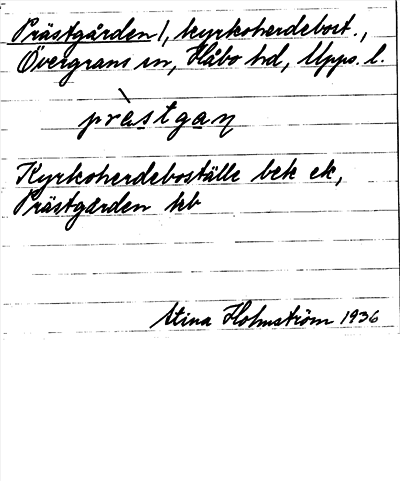 Prästgården/, kyrkoherdebost.,
Övergrans sn, Håbo hd, Upps. l.
pràstgaɳ
Kyrkoherdeboställe bek ek,
Prästgården kb
Stina Holmström 1936